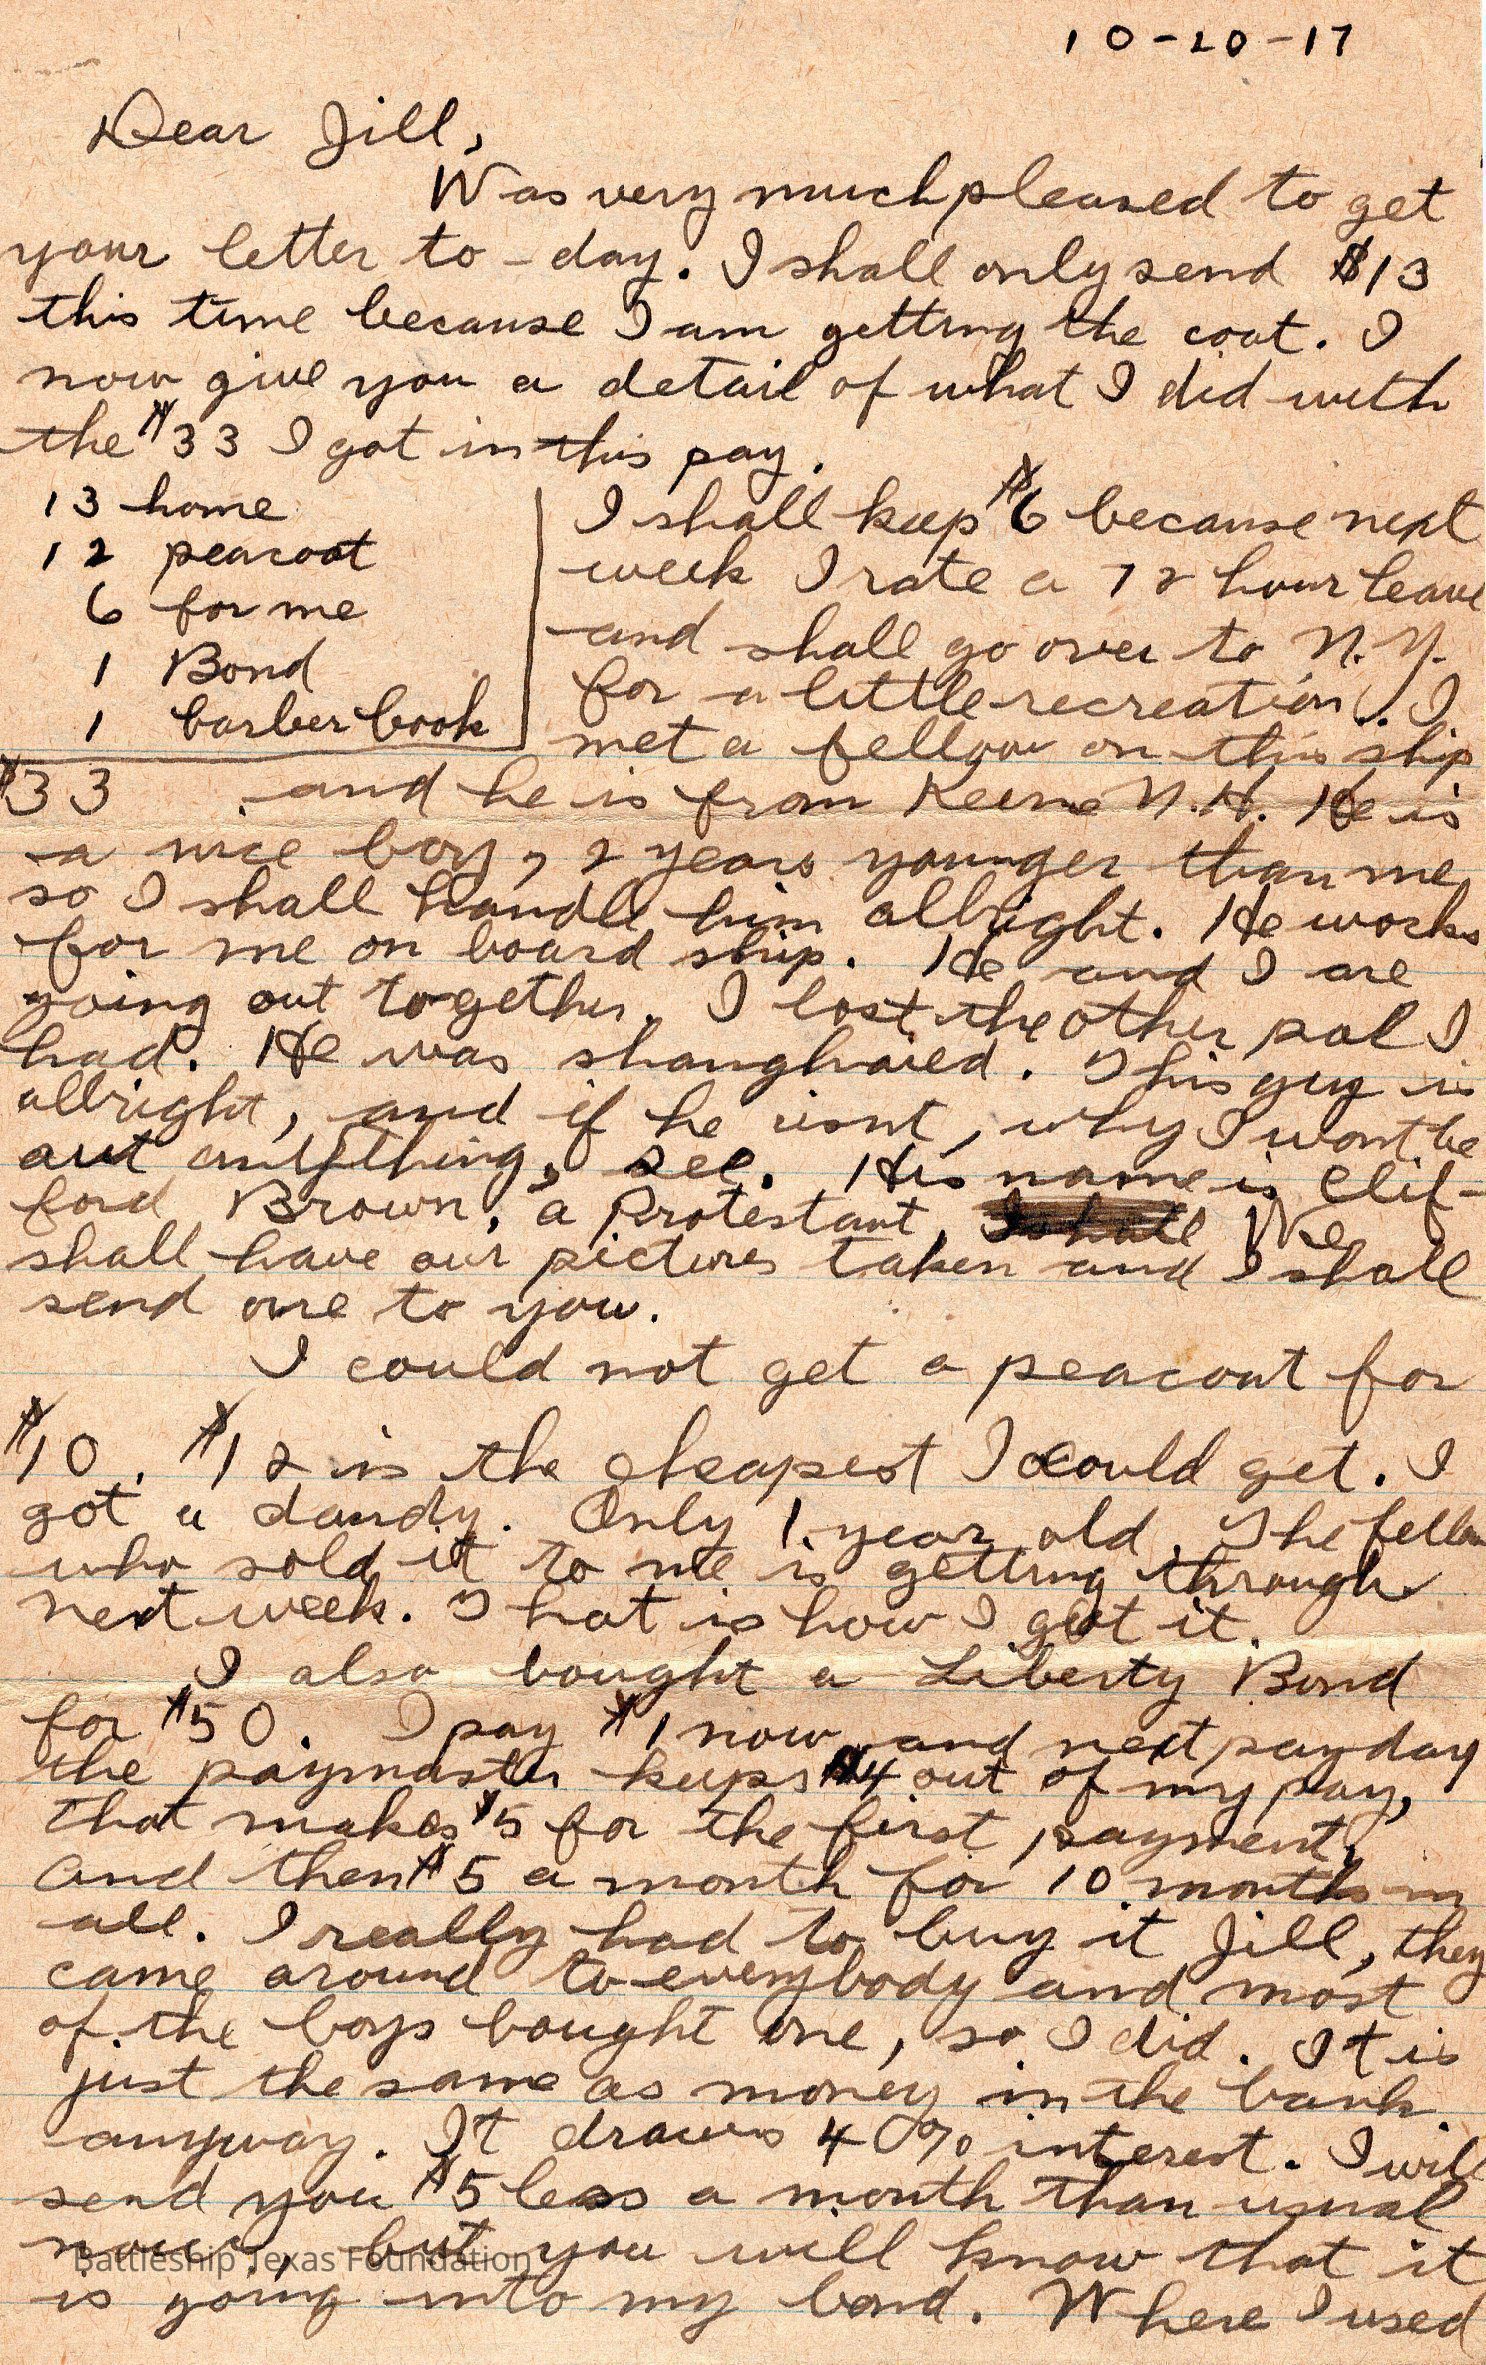 10-20-17
Dear Jill,
Was very much pleased to get
your letter to-day. I shall only send $13
this time because I am getting the coat. I
now give you a detail of what I did with
the $33 I got in this pay.
13 home
12 peacoat
6 for me
1 Bond
1 barber book
$33
I shall keep $6 because next
week I rate a 72 hour leave
and shall go over to N.Y.
for a little recreation. I
met a fellow on this ship
and he is from Keene N.H. He is
a nice boy, 2 years younger than me
so I shall handle him allright. He works
for me on board ship. He and I are
going out together. I lost the other pal I
had. He was shanghaied. This guy is
allright, and if he isnt, why I wont be
out anything, see. His name is Clif-
ford Brown, a Protestant, I shall We
shall have our pictures taken and I shall
send one to you.
I could not get a peacoat for
$10. $12 is the cheapest I could get. I
got a dandy. Only 1 year old. The fellow
who sold it to me is getting through
next week. That is how I got it.
I also bought a Liberty Bond
for $50. I pay $1 now and next payday
the paymaster keeps $4 out of my pay,
that makes $5 for the first payment,
and then $5 a month for 10 months in
all. I really had to buy it Jill, they
came around to everybody and most
of the boys bought one, so I did. It is
just the same as money in the bank
anyway. It draws 4% interest. I will
send you $5 less a month than usual
now, but you will know that it
is going into my bond. Where I used
Battleship Texas Foundation